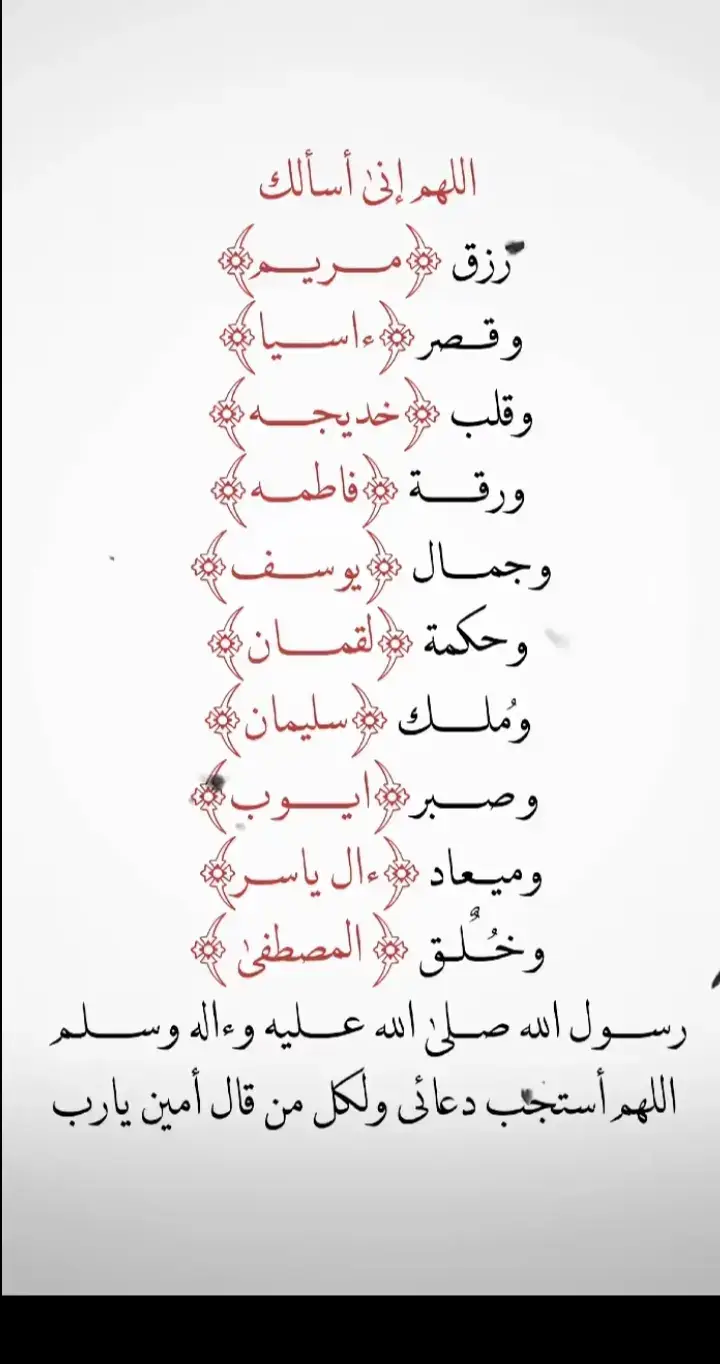 اللهم إنىٰ أسألك
رزق ﴿مريم﴾
وقصر ﴿ءاسيا﴾
وقلب ﴿خديجه﴾
ورقة ﴿فاطمه﴾
وجمال ﴿يوسف﴾
وحكمة ﴿لقمان﴾
ومُلك ﴿سليمان﴾
وصبر ﴿ايوب﴾
وميعاد ﴿ءال ياسر﴾
وخُلق ﴿المصطفىٰ﴾
رسول الله صلىٰ الله عليه وءاله وسلم
اللهم أستجب دعائى ولكل من قال أمين يارب